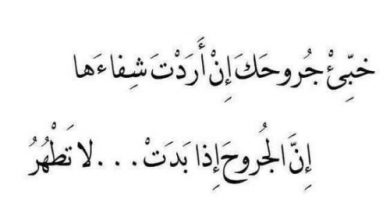 خبِّئْ جُروحَكَ إِنْ أَرَدْتَ شِفاءَها
إِنَّ الجُروحَ إِذا بَدَتْ . . . لا تَطْهُرُ